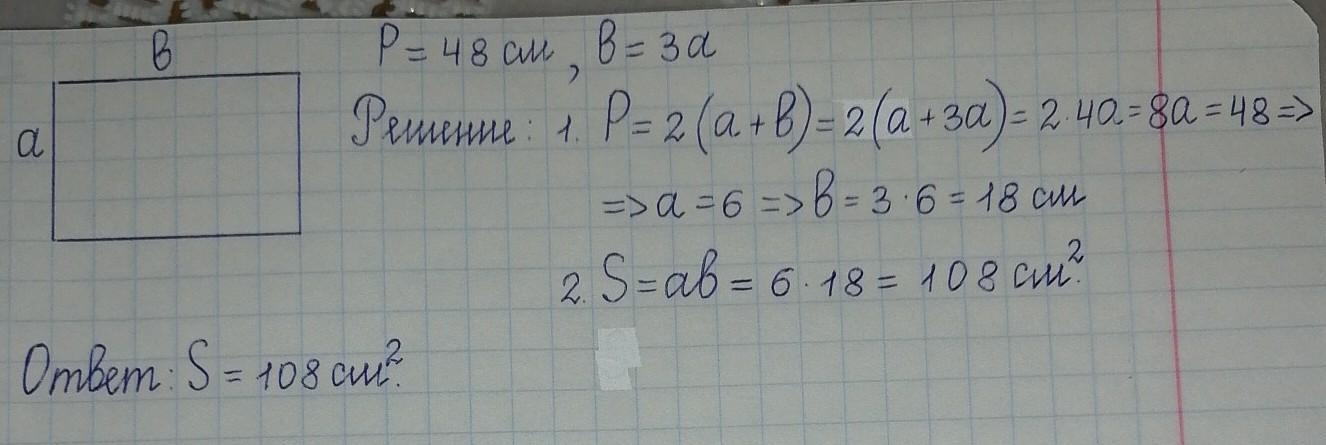 в
P = 48 см, в = 3а
а
Решение: 1. P = 2(а + в) = 2(а + 3а) = 2·4а = 8а = 48 =>
=> а = 6 => в = 3·6 = 18 см
2. S = ав = 6·18 = 108 см².
Ответ: S = 108 см².